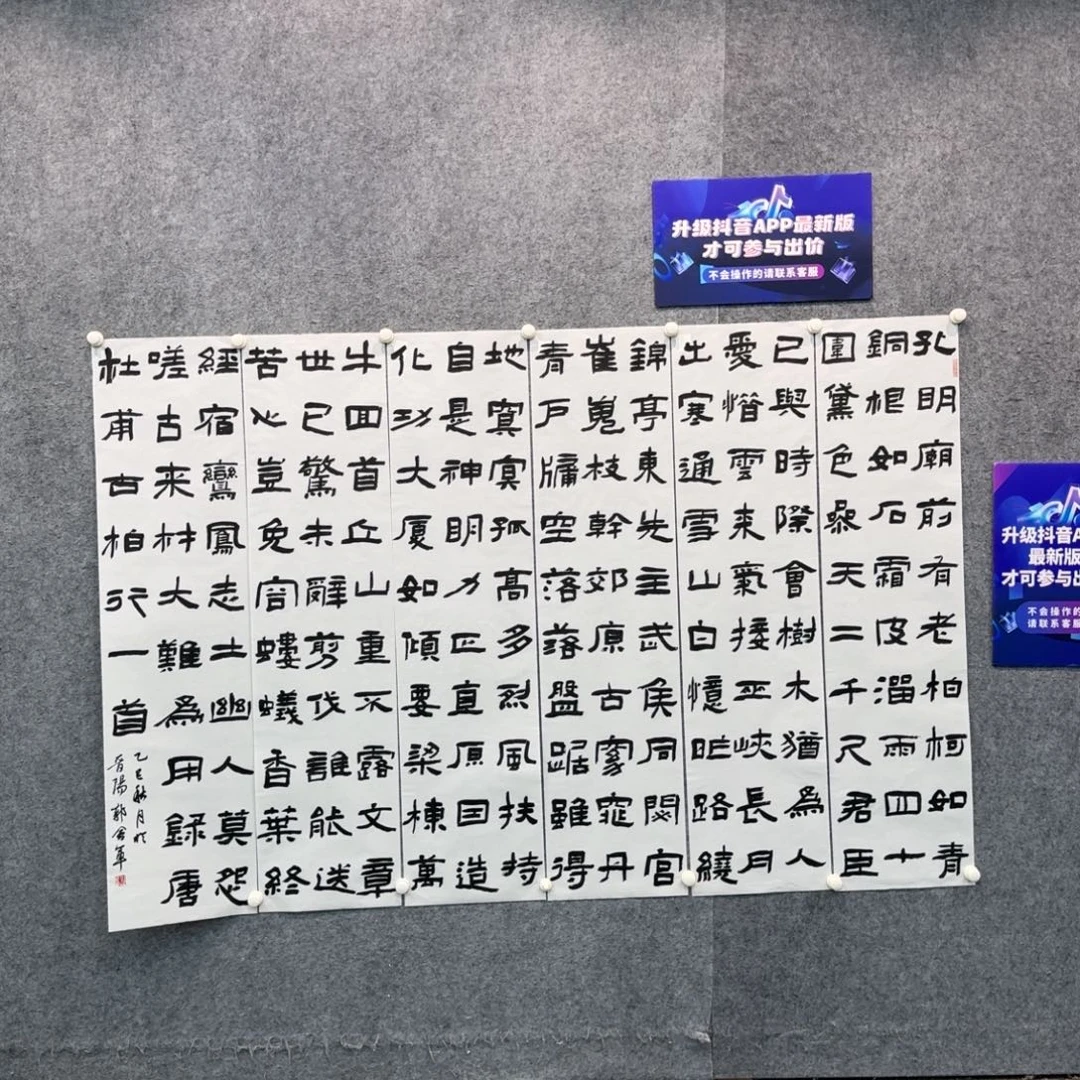 孔明廟前有老柏柯如青
銅根如石霜皮溜雨四十
圍黛色參天二千尺君臣
已與時際會樹木猶為人
愛惜雲来氣接巫峽長月
出寒通雪山白憶昨路繞
錦亭東先主武侯同閟宮
崔嵬枝幹郊原古窈窕丹
青戶牖空落落盤踞雖得
地冥冥孤高多烈風扶持
自是神明力正直原因造
化功大廈如傾要梁棟萬
牛回首丘山重不露文章
世已驚未辭剪伐誰能送
苦心豈免容螻蟻香葉終
經宿鸞鳳志士幽人莫怨
嗟古来材大難為用録唐
杜甫古柏行一首
乙巳秋月於
晋陽郭会軍
升级抖音APP最新版
才可参与出价
不会操作的请联系客服
升级抖音A
最新版
才可参与出
不会操作的
请联系客服